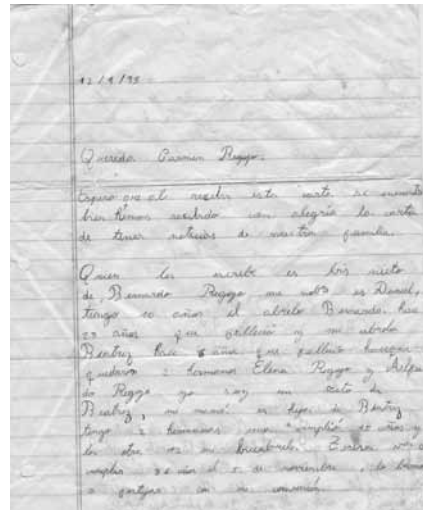 12/9/95
Querida Carmen Reggo.
Espero que al recibir esta carta se encuentre
bien hemos recibido con alegría la carta
de tener noticias de nuestra familia.
Quien les escribe es bis nieto
de Bernardo Reggo me es Daniel,
tengo 10 años el abuelo Bernardo hace
20 años que falleció y mi abuela
Beatriz hace años que falleció
quedaron 2 hermanos Elena Reggo y
do Reggo yo soy un nieto de
Beatriz, mi mamá es hija de Beatriz
tengo 2 hermanos una cumplió años y
los otro en
cumplo años el de noviembre, lo
a festejar con mi comunión.